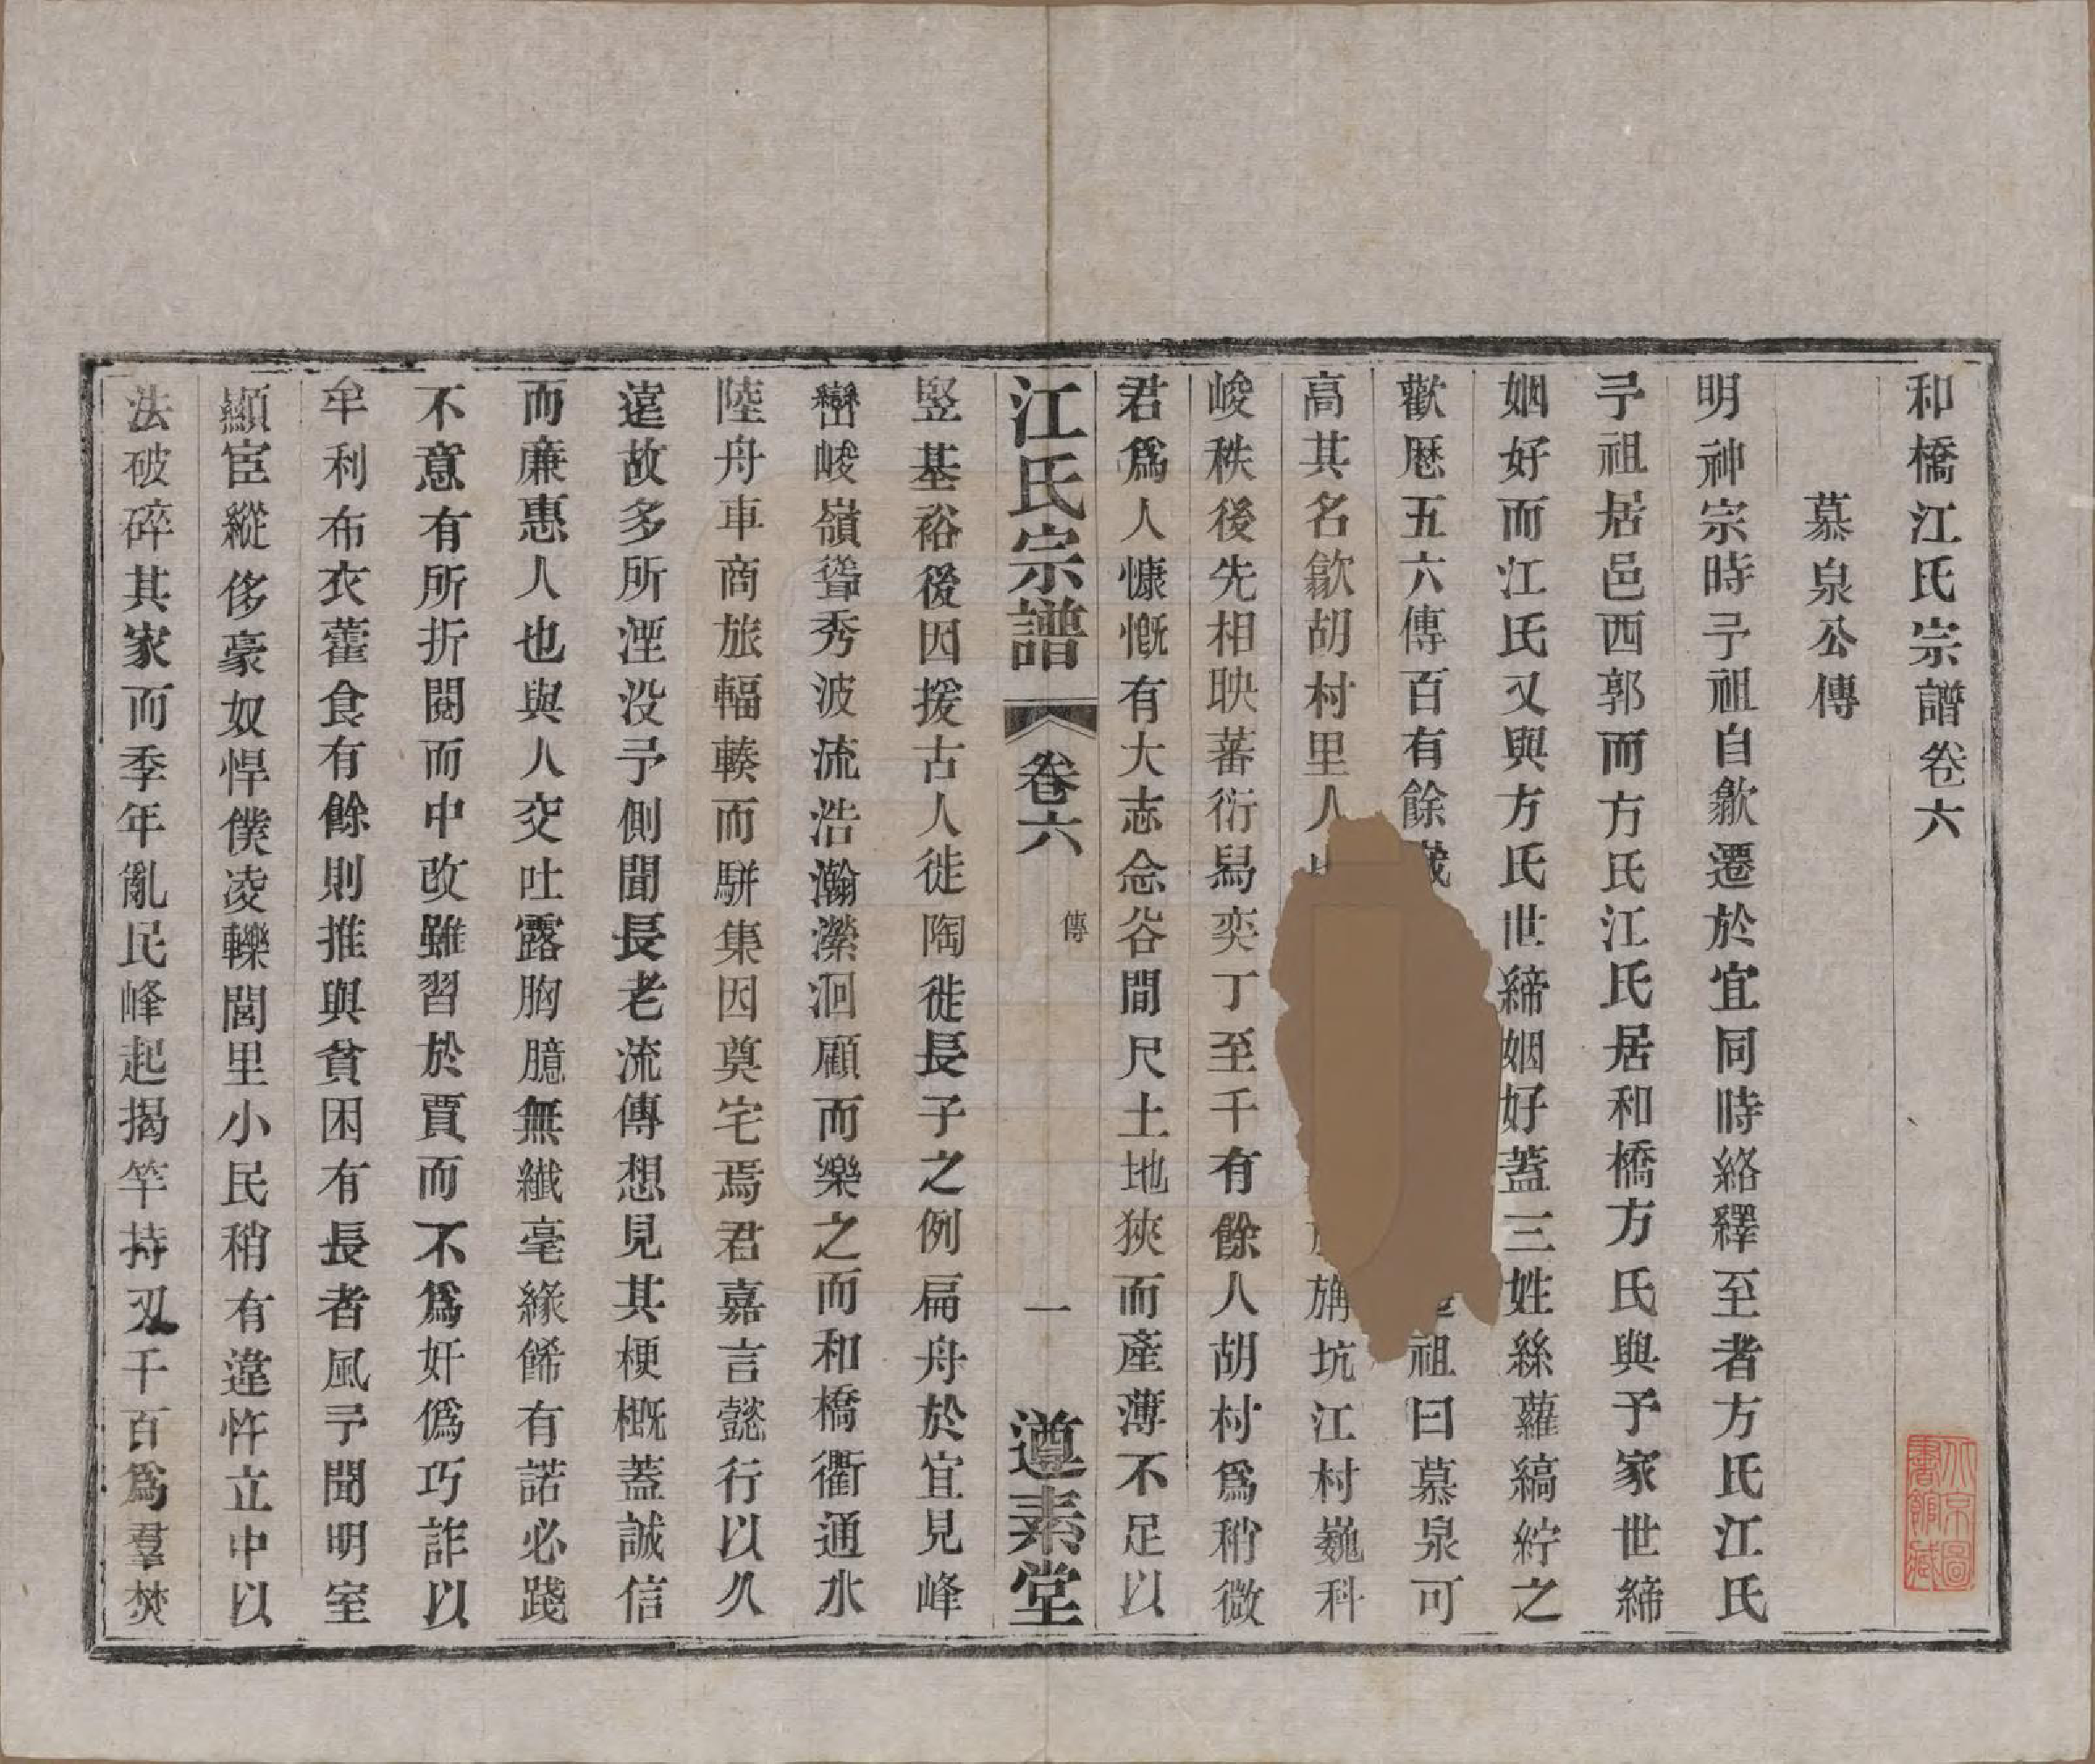 和橋江氏宗譜卷六
慕泉公傳
明神宗時予祖自歙遷於宜同時絡繹至者方氏江氏
予祖居邑西郭而方氏江氏居和橋方氏與予家世締
姻好而江氏又與方氏世締姻好蓋三姓絲蘿縞紵之
歡厯五六傳百有餘歲 祖曰慕泉可
高其名歙胡村里人 旃坑江村巍科
峻秩後先相映蕃衍舄奕丁至千有餘人胡村爲稍微
君爲人慷慨有大志念谷間尺土地狹而產薄不足以
江氏宗譜 卷六 傳 一 遵素堂
竪基裕後因援古人徙陶徙長子之例扁舟於宜見峰
巒峻嶺聳秀波流浩瀚瀠洄顧而樂之而和橋衢通水
陸舟車商旅輻輳而駢集因奠宅焉君嘉言懿行以久
遠故多所湮没予側聞長老流傳想見其梗概蓋誠信
而廉惠人也與人交吐露胸臆無纖毫緣餙有諾必踐
不意有所折閱而中改雖習於賈而不爲奸僞巧詐以
牟利布衣藿食有餘則推與貧困有長者風予聞明室
顯宦縱侈豪奴悍僕凌轢閭里小民稍有違忤立中以
法破碎其家而季年亂民峰起揭竿持刄千百爲羣焚
北京圖書館藏